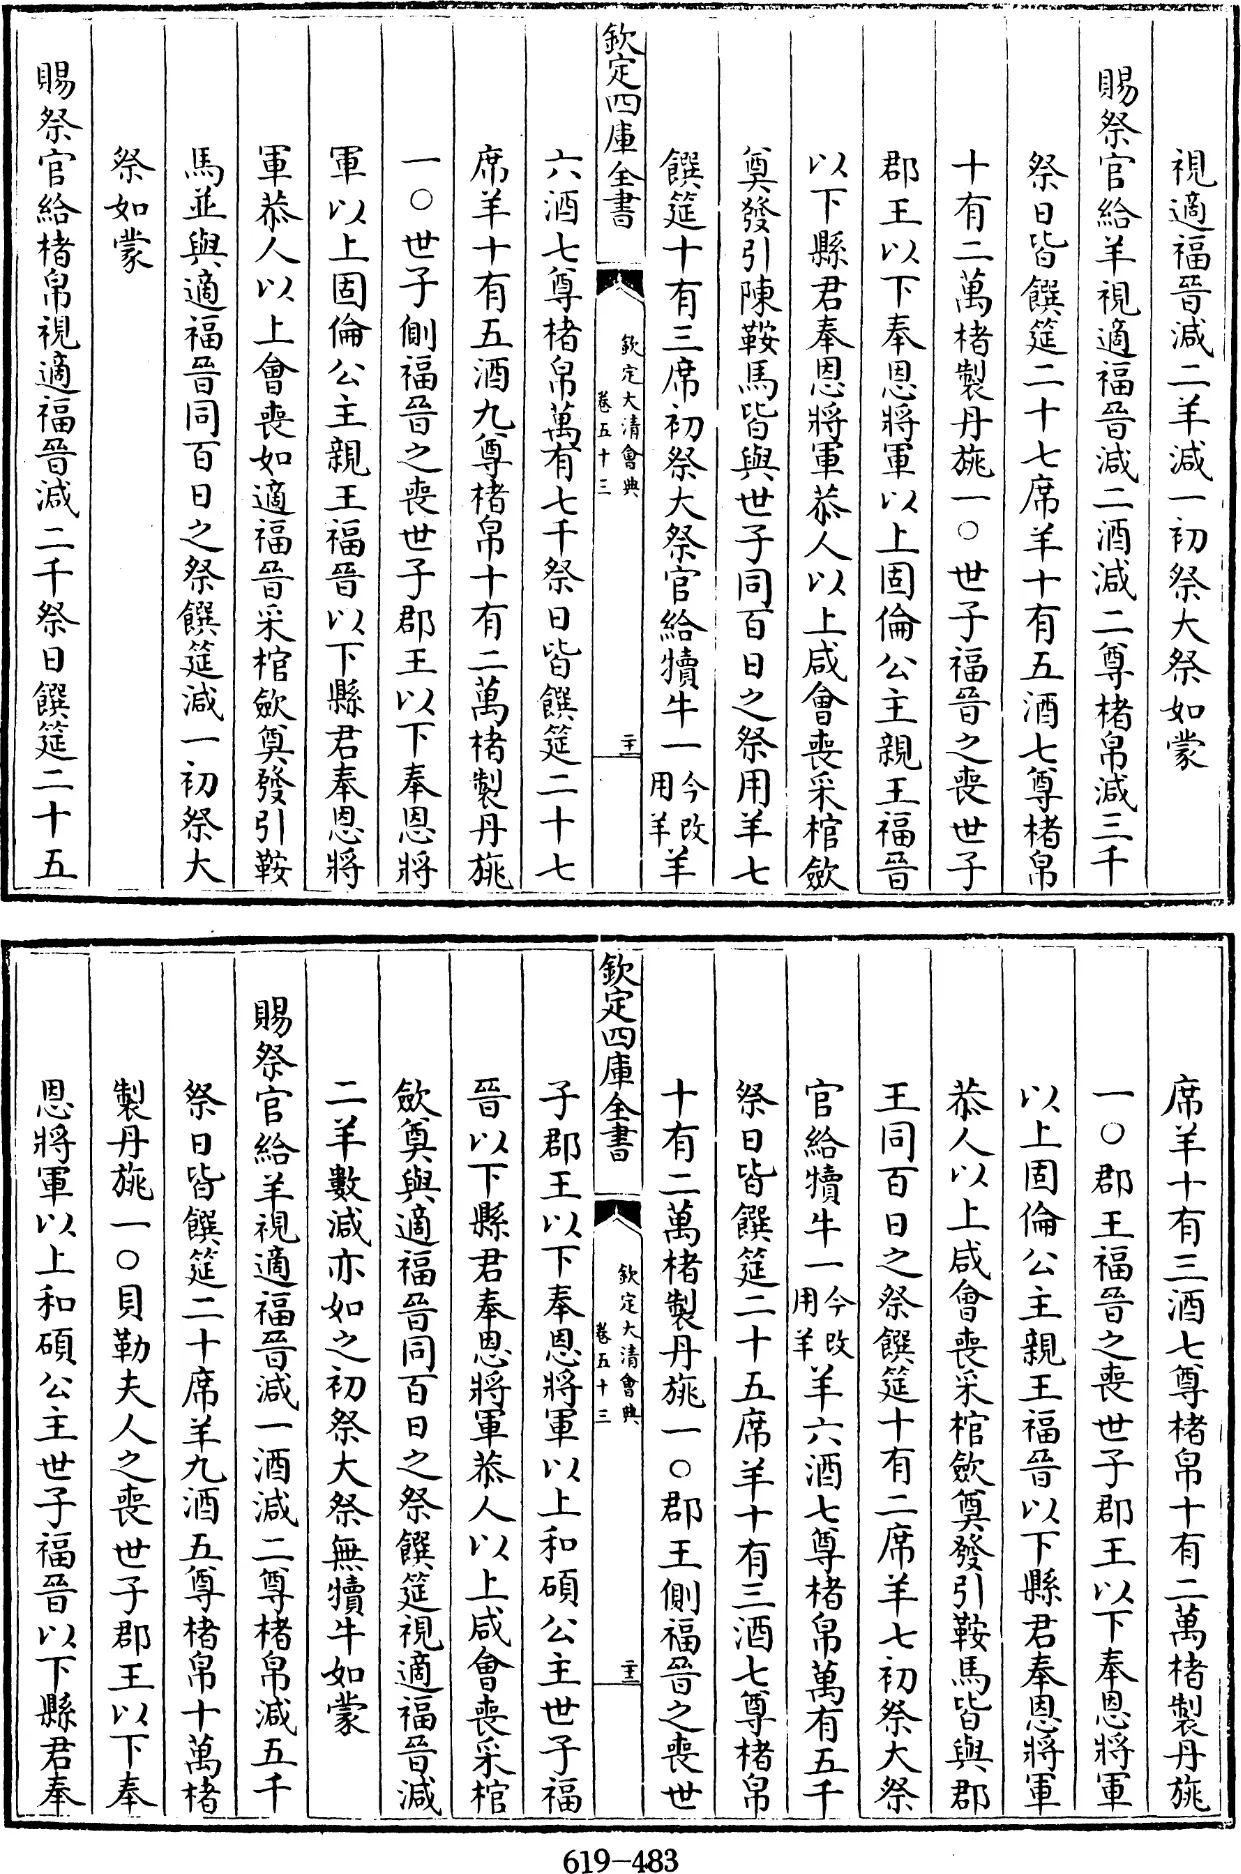 視適福晉減二羊減一初祭大祭如蒙
賜祭官給羊視適福晉減二酒減二尊楮帛減三千
祭日皆饌筵二十七席羊十有五酒七尊楮帛
十有二萬楮製丹旐一○世子福晉之喪世子
郡王以下奉恩將軍以上固倫公主親王福晉
以下縣君奉恩將軍恭人以上咸會喪采棺歛
奠發引陳鞍馬皆與世子同百日之祭用羊七
饌筵十有三席初祭大祭官給犢牛一今改用羊羊
欽定四庫全書
欽定大清會典
卷五十三
二十
六酒七尊楮帛萬有七千祭日皆饌筵二十七
席羊十有五酒九尊楮帛十有二萬楮製丹旐
一○世子側福晉之喪世子郡王以下奉恩將
軍以上固倫公主親王福晉以下縣君奉恩將
軍恭人以上會喪如適福晉采棺歛奠發引鞍
馬並與適福晉同百日之祭饌筵減一初祭大
祭如蒙
賜祭官給楮帛視適福晉減二千祭日饌筵二十五
席羊十有三酒七尊楮帛十有二萬楮製丹旐
一○郡王福晉之喪世子郡王以下奉恩將軍
以上固倫公主親王福晉以下縣君奉恩將軍
恭人以上咸會喪采棺歛奠發引鞍馬皆與郡
王同百日之祭饌筵十有二席羊七初祭大祭
官給犢牛一今改用羊羊六酒七尊楮帛萬有五千
祭日皆饌筵二十五席羊十有三酒七尊楮帛
十有二萬楮製丹旐一○郡王側福晉之喪世
欽定四庫全書
欽定大清會典
卷五十三
二十一
子郡王以下奉恩將軍以上和碩公主世子福
晉以下縣君奉恩將軍恭人以上咸會喪采棺
歛奠與適福晉同百日之祭饌筵視適福晉減
二羊數減亦如之初祭大祭無犢牛如蒙
賜祭官給羊視適福晉減一酒減二尊楮帛減五千
祭日皆饌筵二十席羊九酒五尊楮帛十萬楮
製丹旐一○貝勒夫人之喪世子郡王以下奉
恩將軍以上和碩公主世子福晉以下縣君奉
619-483